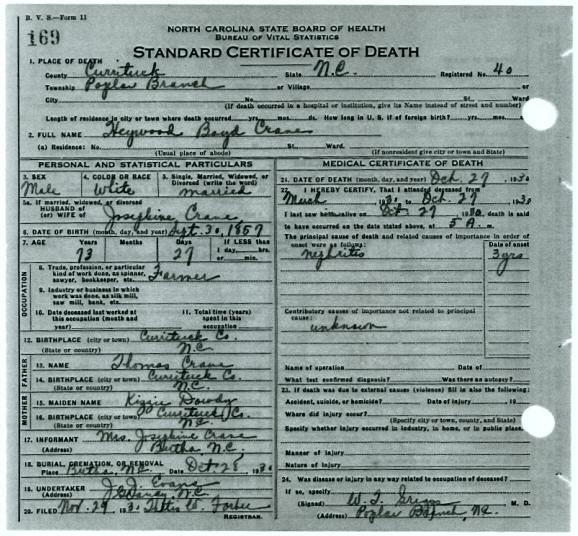 B. V. S.—Form 11
169
NORTH CAROLINA STATE BOARD OF HEALTH
BUREAU OF VITAL STATISTICS
STANDARD CERTIFICATE OF DEATH
1. PLACE OF DEATH
County Currituck State N.C. Registered No. 40
Township Poplar Branch or Village
City No. St., Ward
(If death occurred in a hospital or institution, give its Name instead of street and number)
Length of residence in city or town where death occurred yrs. mos. ds. How long in U. S. if of foreign birth? yrs. mos.
2. FULL NAME Heywood Boyd Crane
(a) Residence: No. St. Ward.
(Usual place of abode) (If nonresident give city or town and State)
PERSONAL AND STATISTICAL PARTICULARS
3. SEX 4. COLOR OR RACE 5. Single, Married, Widowed, or Divorced (write the word)
Male White married
5a. If married, widowed, or divorced
HUSBAND of
(or) WIFE of Josephine Crane
6. DATE OF BIRTH (month, day, and year) Sept. 30, 1857
7. AGE Years Months Days If LESS than 1 day, hrs. or min.
73 27
OCCUPATION
8. Trade, profession, or particular kind of work done, as spinner, sawyer, bookkeeper, etc. Farmer
9. Industry or business in which work was done, as silk mill, saw mill, bank, etc.
10. Date deceased last worked at this occupation (month and year)
11. Total time (years) spent in this occupation
12. BIRTHPLACE (city or town) Currituck Co.
(State or country) N.C.
FATHER
13. NAME Thomas Crane
14. BIRTHPLACE (city or town) Currituck Co.
(State or country) N.C.
MOTHER
15. MAIDEN NAME Kizzie Dowdy
16. BIRTHPLACE (city or town) Currituck Co.
(State or country) N.C.
17. INFORMANT Mrs. Josephine Crane
(Address) Bertha, N.C.
18. BURIAL, CREMATION, OR REMOVAL
Place Bertha, N.C. Date Oct 28 1930
19. UNDERTAKER J. J. Evans
N.C.
20. FILED Nov. 29 1930
REGISTRAR.
MEDICAL CERTIFICATE OF DEATH
21. DATE OF DEATH (month, day, and year) Oct. 27, 1930
22. I HEREBY CERTIFY, That I attended deceased from
Much 1930 to Oct. 27 1930
I last saw h alive on Oct. 27 1930 death is said
to have occurred on the date stated above, at 5 A. m.
The principal cause of death and related causes of importance in order of onset were as follows: Date of onset
nephritis 3 yrs
Contributory causes of importance not related to principal cause:
unknown
Name of operation Date of
What test confirmed diagnosis? Was there an autopsy?
23. If death was due to external causes (violence) fill in also the following:
Accident, suicide, or homicide? Date of injury 19
Where did injury occur?
(Specify city or town, county, and State)
Specify whether injury occurred in industry, in home, or in public place.
Manner of injury
Nature of injury
24. Was disease or injury in any way related to occupation of deceased?
If so, specify
(Signed) W. T. Griggs M. D.
(Address) Poplar Branch, N.C.